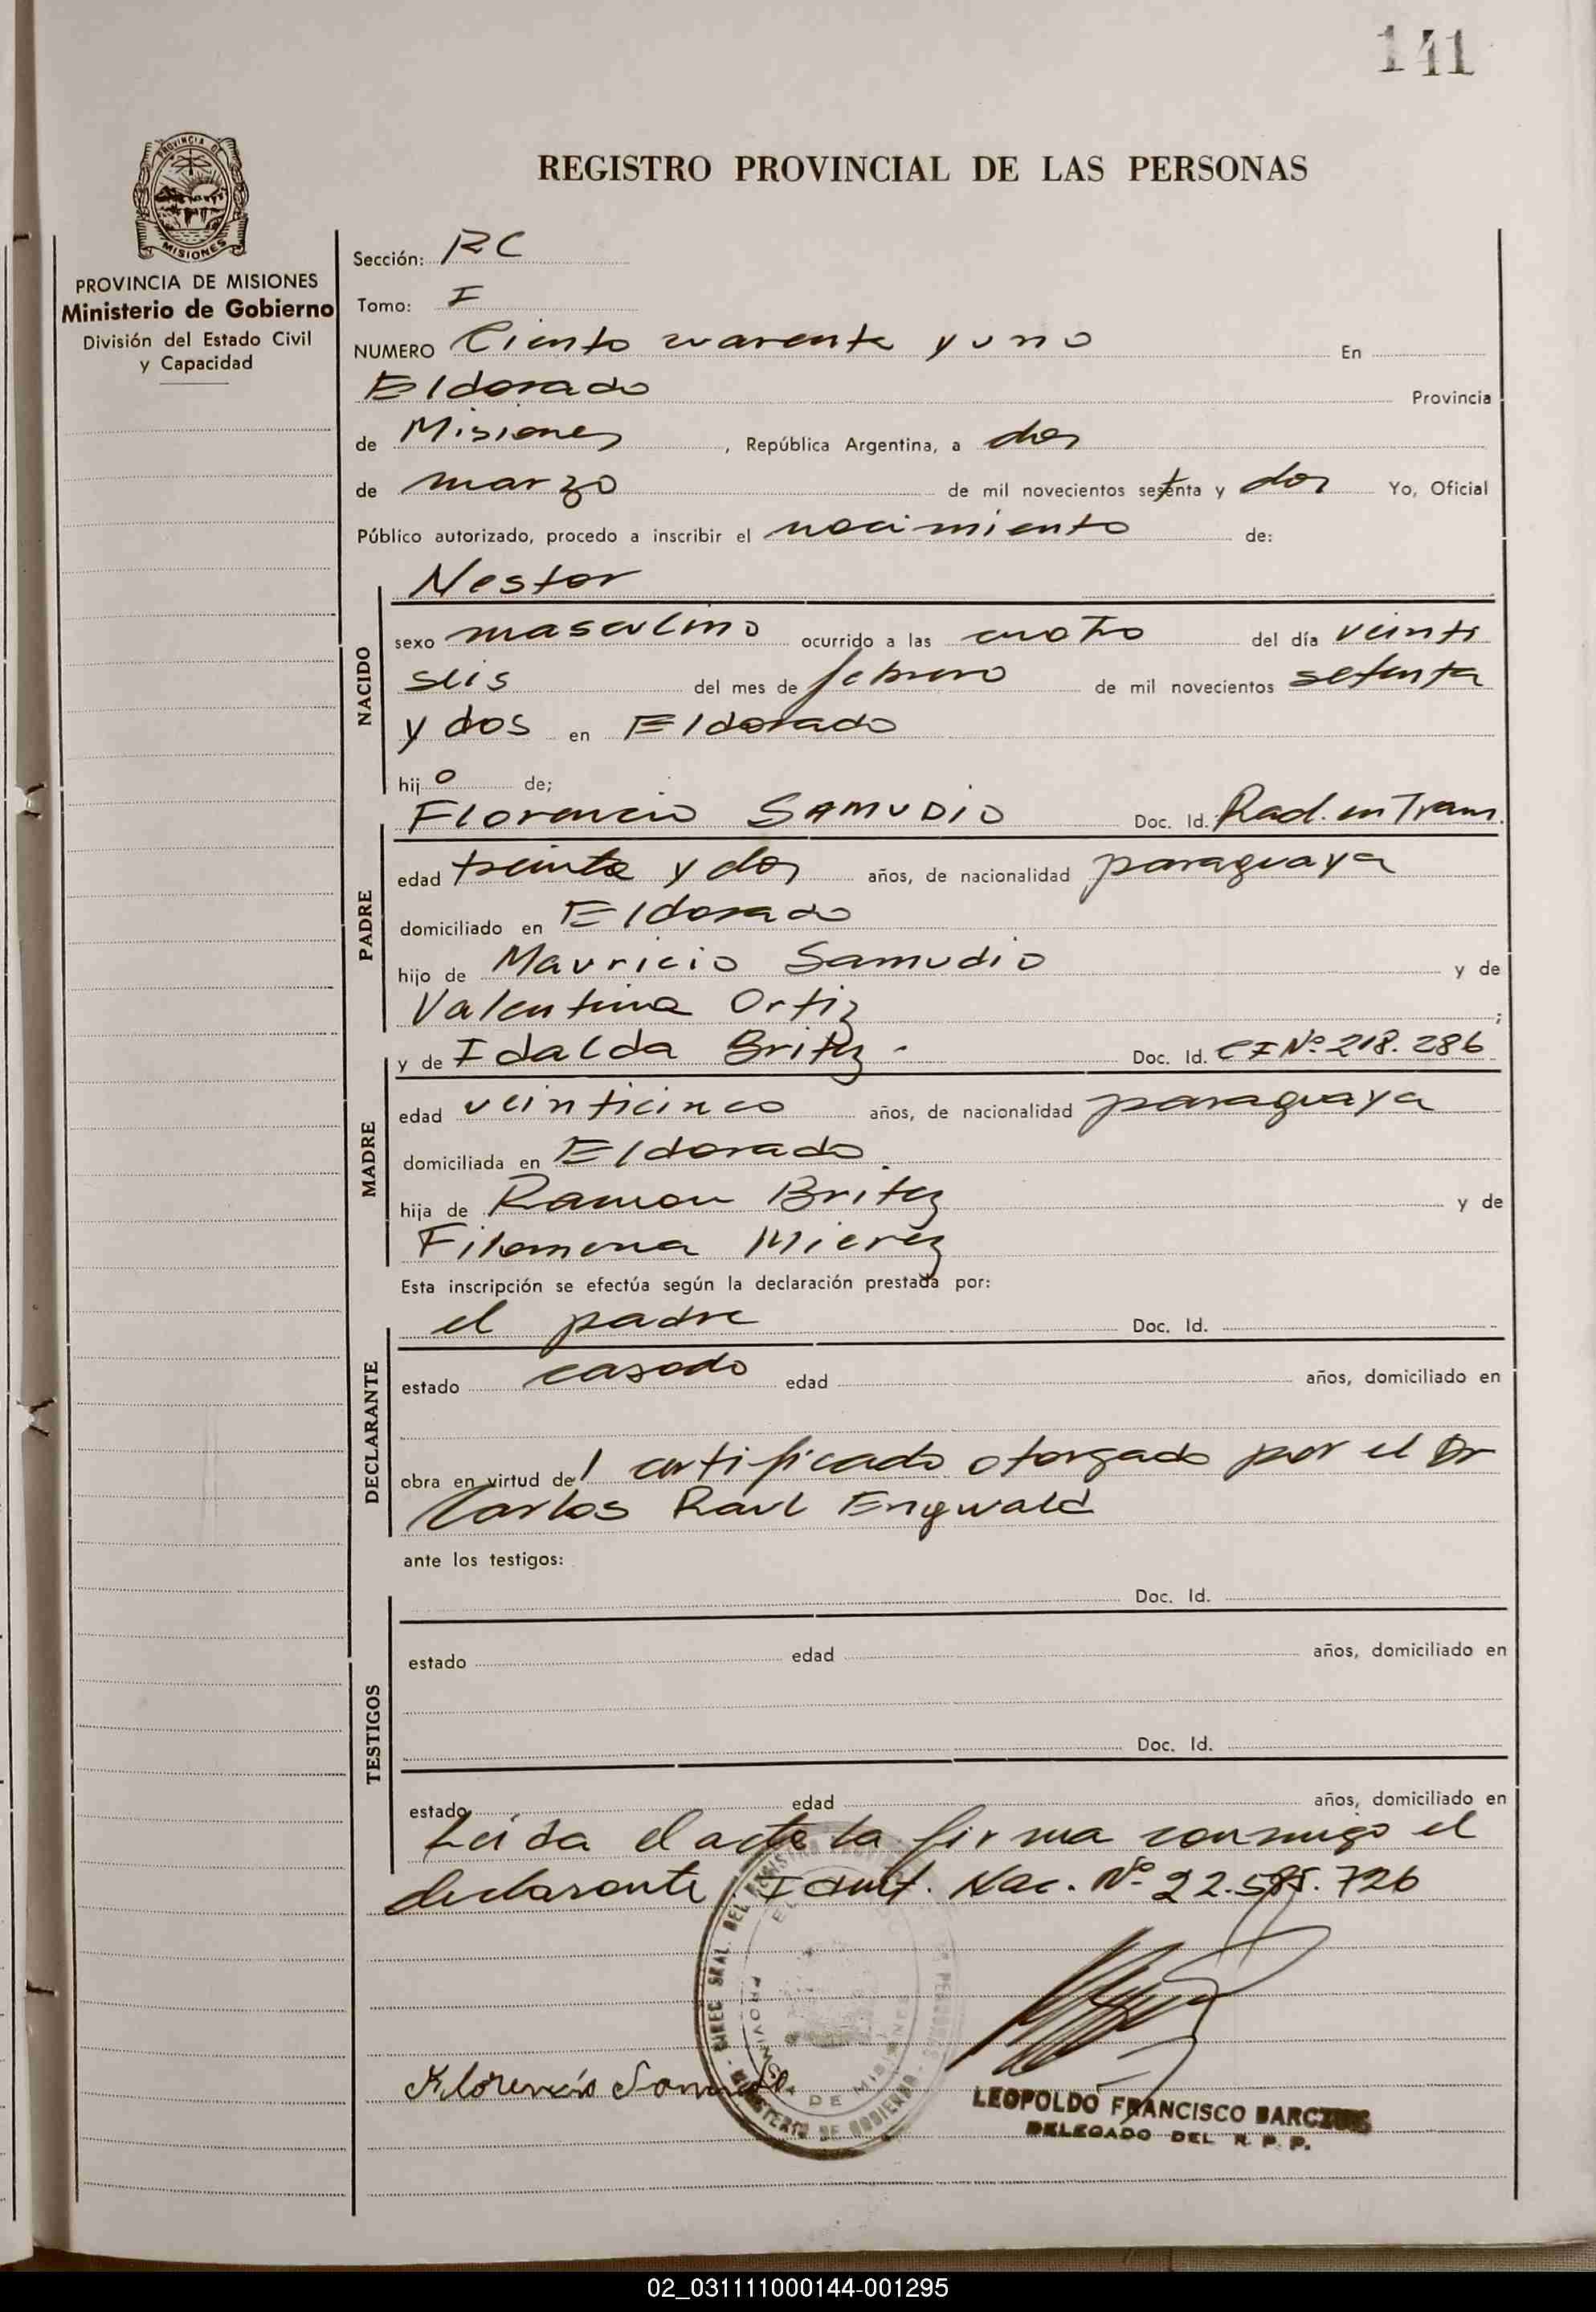 141
PROVINCIA DE
MISIONES
PROVINCIA DE MISIONES
Ministerio de Gobierno
División del Estado Civil
y Capacidad
REGISTRO PROVINCIAL DE LAS PERSONAS
Sección: RC
Tomo: I
NUMERO Ciento cuarenta y uno En
Eldorado Provincia
de Misiones, República Argentina, a dos
de marzo de mil novecientos setenta y dos Yo, Oficial
Público autorizado, procedo a inscribir el nacimiento de:
Nestor
NACIDO
sexo masculino ocurrido a las cuatro del día veinti
seis del mes de febrero de mil novecientos setenta
y dos en Eldorado
hijo de;
Florencio SAMUDIO Doc. Id. Rad. en Tram.
PADRE
edad treinta y dos años, de nacionalidad paraguaya
domiciliado en Eldorado
hijo de Mauricio Samudio y de
Valentina Ortiz ;
y de Idalda Britez. Doc. Id. CI Nº 218.286
MADRE
edad veinticinco años, de nacionalidad paraguaya
domiciliada en Eldorado
hija de Ramon Britez y de
Filomena Mierez
Esta inscripción se efectúa según la declaración prestada por:
el padre Doc. Id.
DECLARANTE
estado casado edad años, domiciliado en
obra en virtud del certificado otorgado por el Dr
Carlos Raul Engwald
ante los testigos:
Doc. Id.
TESTIGOS
estado edad años, domiciliado en
Doc. Id.
estado edad años, domiciliado en
Leida el acta la firma conmigo el
declarante. Ident. Nac. Nº 22.585.726
DIREC. GRAL. DEL REGISTRO PROVINCIAL DE LAS PERSONAS
MINISTERIO DE GOBIERNO
PROVINCIA DE MISIONES
Florencio Samudio
LEOPOLDO FRANCISCO
DELEGADO DEL R. P. P.
02_031111000144-001295